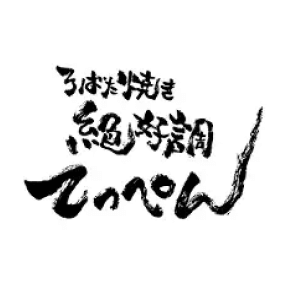 ろばた焼き
絶好調
てっぺん